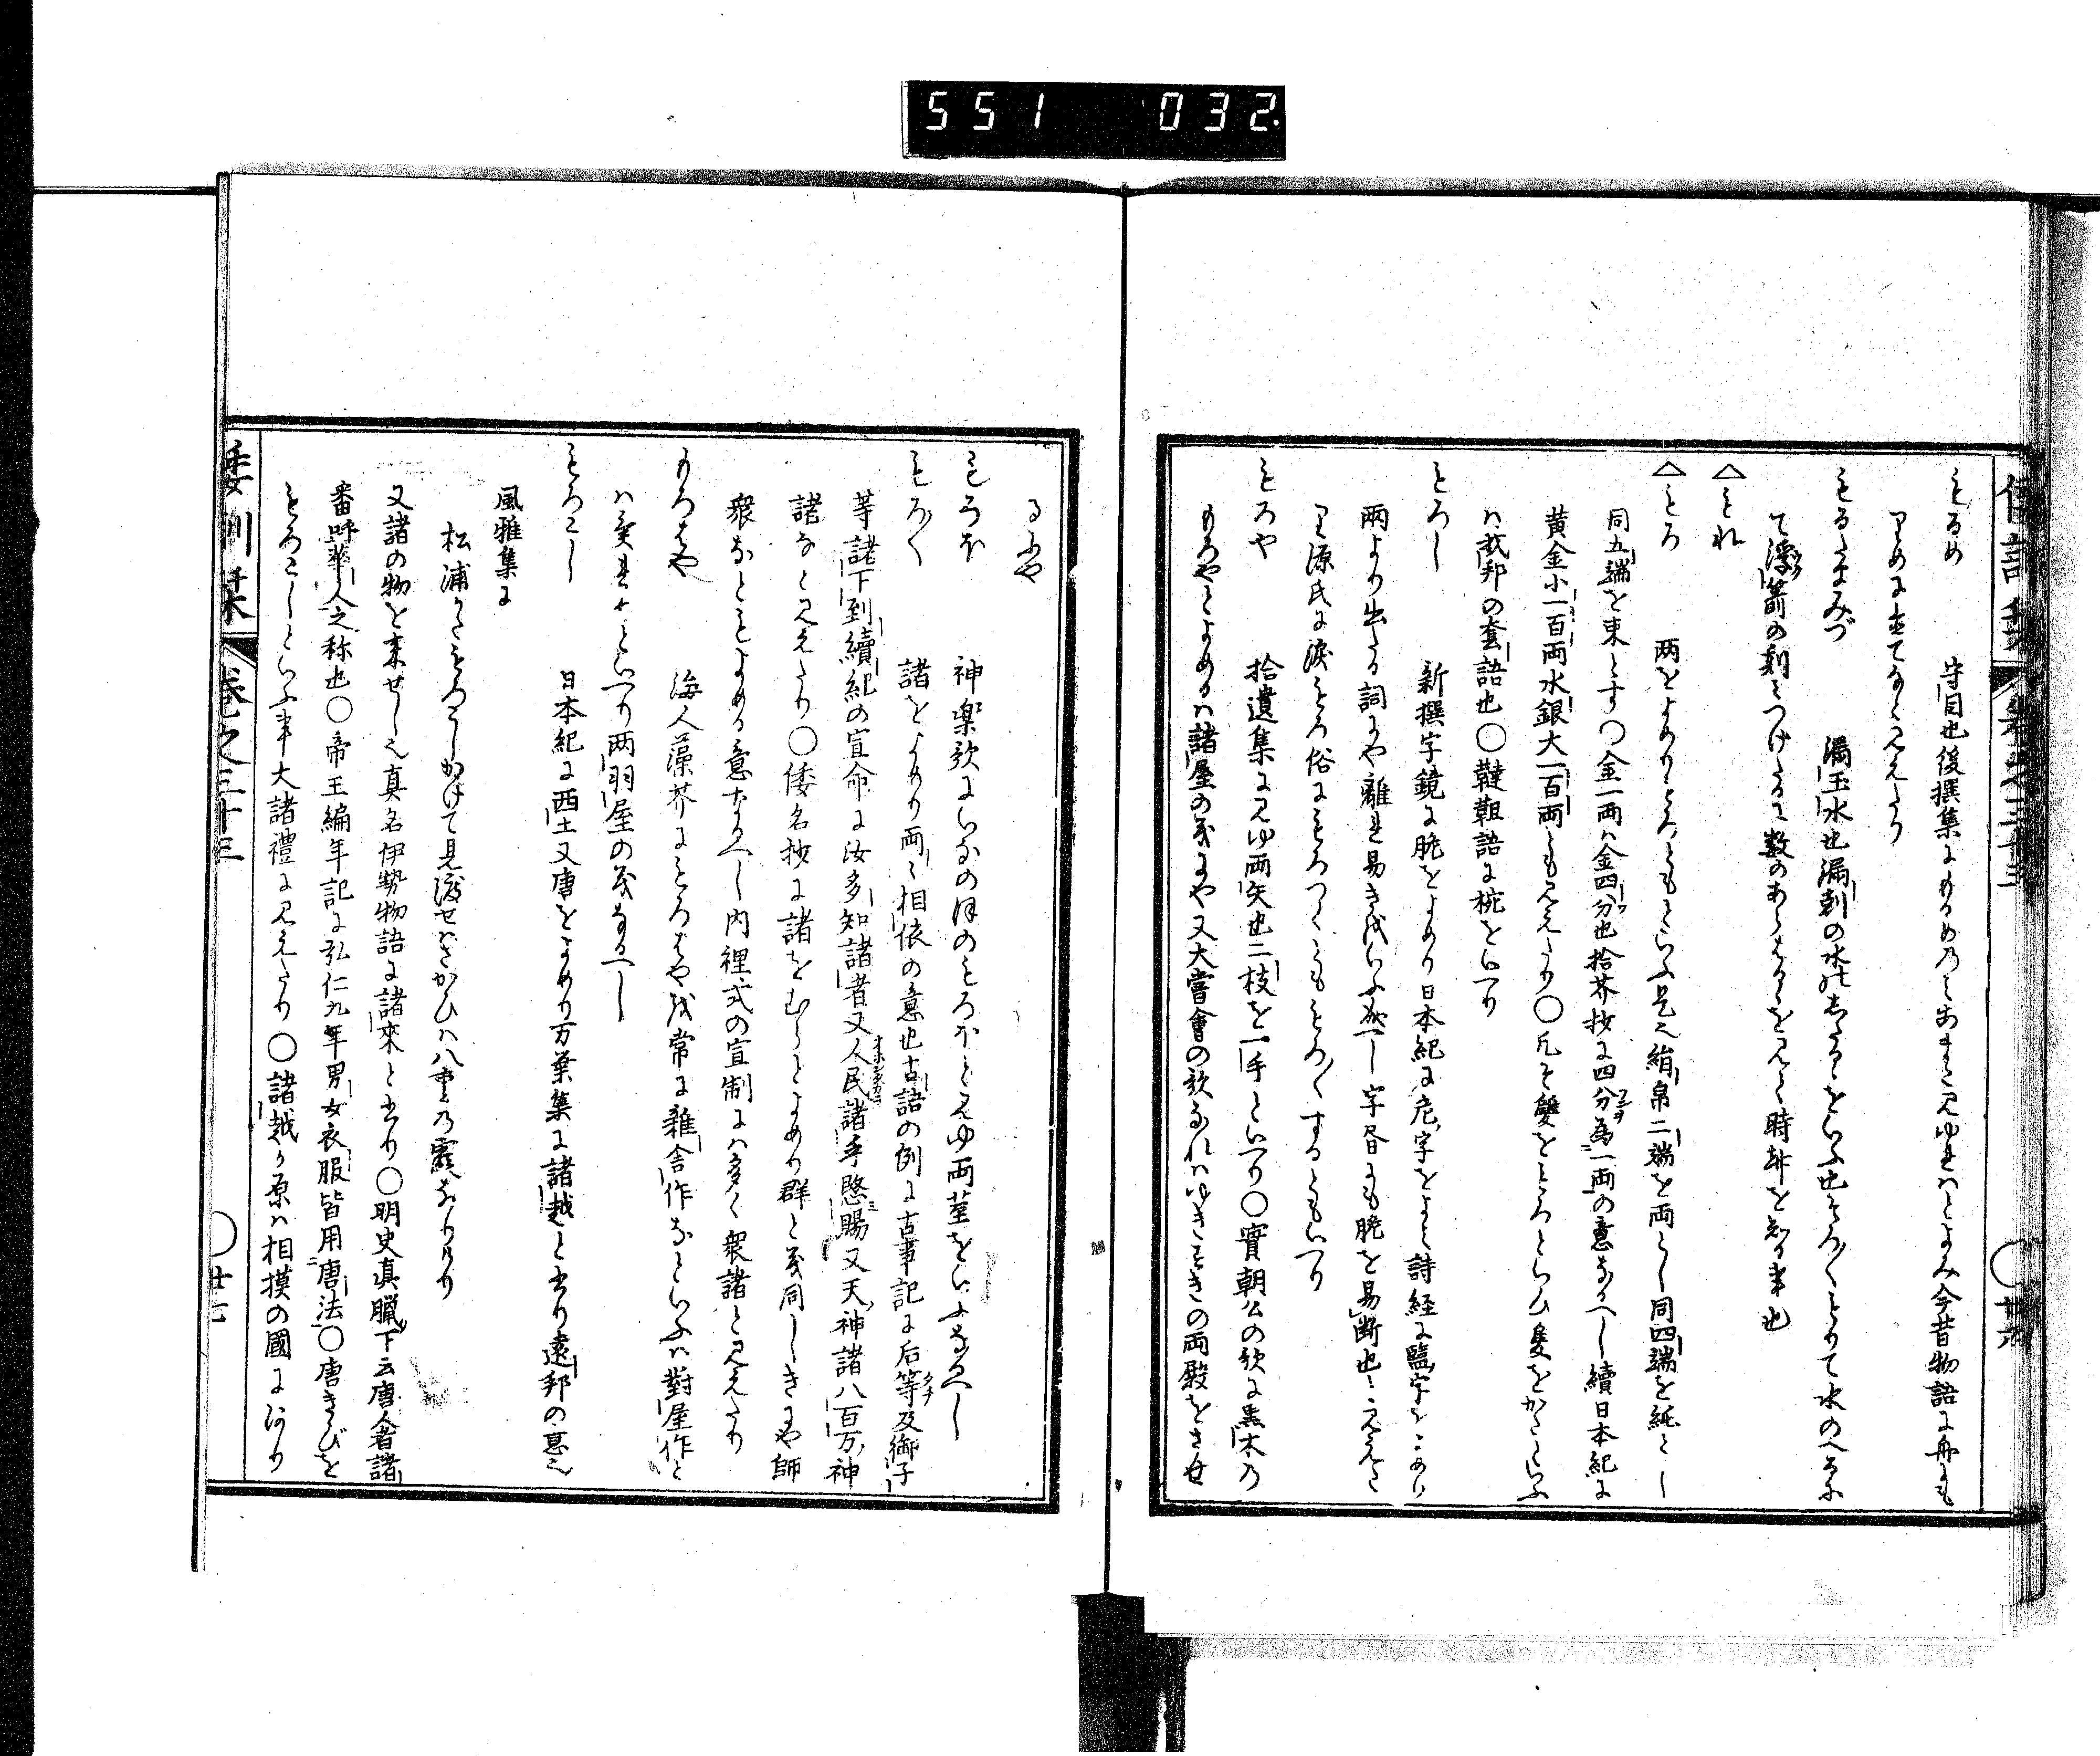 551 032.
倭訓栞 巻之三十三 廿六
もるめ 守目也後撰集にもるめのみあまた見ゆれはとよみ今昔物語に舟にも
りめに立てなと見えたり
もるたまみづ 漏玉水也漏刻の水のしたゝるをいふ也そろ〳〵もりて水のへるに
て浮箭の刻につけたる数のあらはるゝを見て時刻を知る事也
△もれ
△もろ 両をよめりもろともといふ是也絹帛二端を両とし同四端を純とし
同五端を束とす〇金一両は金四分也拾芥抄に四分為一両の意なるへし續日本紀に
黄金小一百両水銀大一百両とも見えたり〇凡そ雙をもろといひ隻をかたといふ
は我邦の套語也〇韃靼語に椀をいへり
もろし 新撰字鏡に脆をよめり日本紀に危字をよみ詩経に盬字をよめり
両より出たる詞にや離れ易き成いふ成へし字書にも脆を易断也と見えた
り源氏に涙もろ俗にもろつくももろ〳〵するともいへり
もろや 拾遺集に見ゆ両矢也二枝を一手といへり〇實朝公の歌に黒木の
もろやとよめるは諸屋の義にや又大嘗會の歌なれはゆきすきの両殿をさせ
るにや
もろほ 神楽歌にいなのほのもろほと見ゆ両莖をいふなるへし
もろ〳〵 諸をよめり両々相依の意也古語の例に古事記に后等及御子
等諸下到續紀の宣命に汝多知諸者又人民諸手愍賜又天神諸八百万神
諸なと見えたり〇倭名抄に諸をむらとよめり群と義同しきにや師
衆なともよめる意なるへし内裡式の宣制には多く衆諸と見えたり
もろはや 海人藻芥にもろはや成常に雜舎作なといふは對屋作と
は異れりといへり両羽屋の義なるへし
もろこし 日本紀に西土又唐をよめり万葉集に諸越と書り遠邦の意也
風雅集に
松浦かたもろこしかけて見渡せはさかひは八重の霞なりけり
又諸の物を来せし也真名伊勢物語に諸來と書り〇明史真臘下云唐人者諸
番呼華人之称也〇帝王編年記に弘仁九年男女衣服皆用唐法〇唐きびを
もろこしといふ事大諸禮に見えたり〇諸越か原は相摸の國にあり
倭訓栞 巻之三十三 廿七